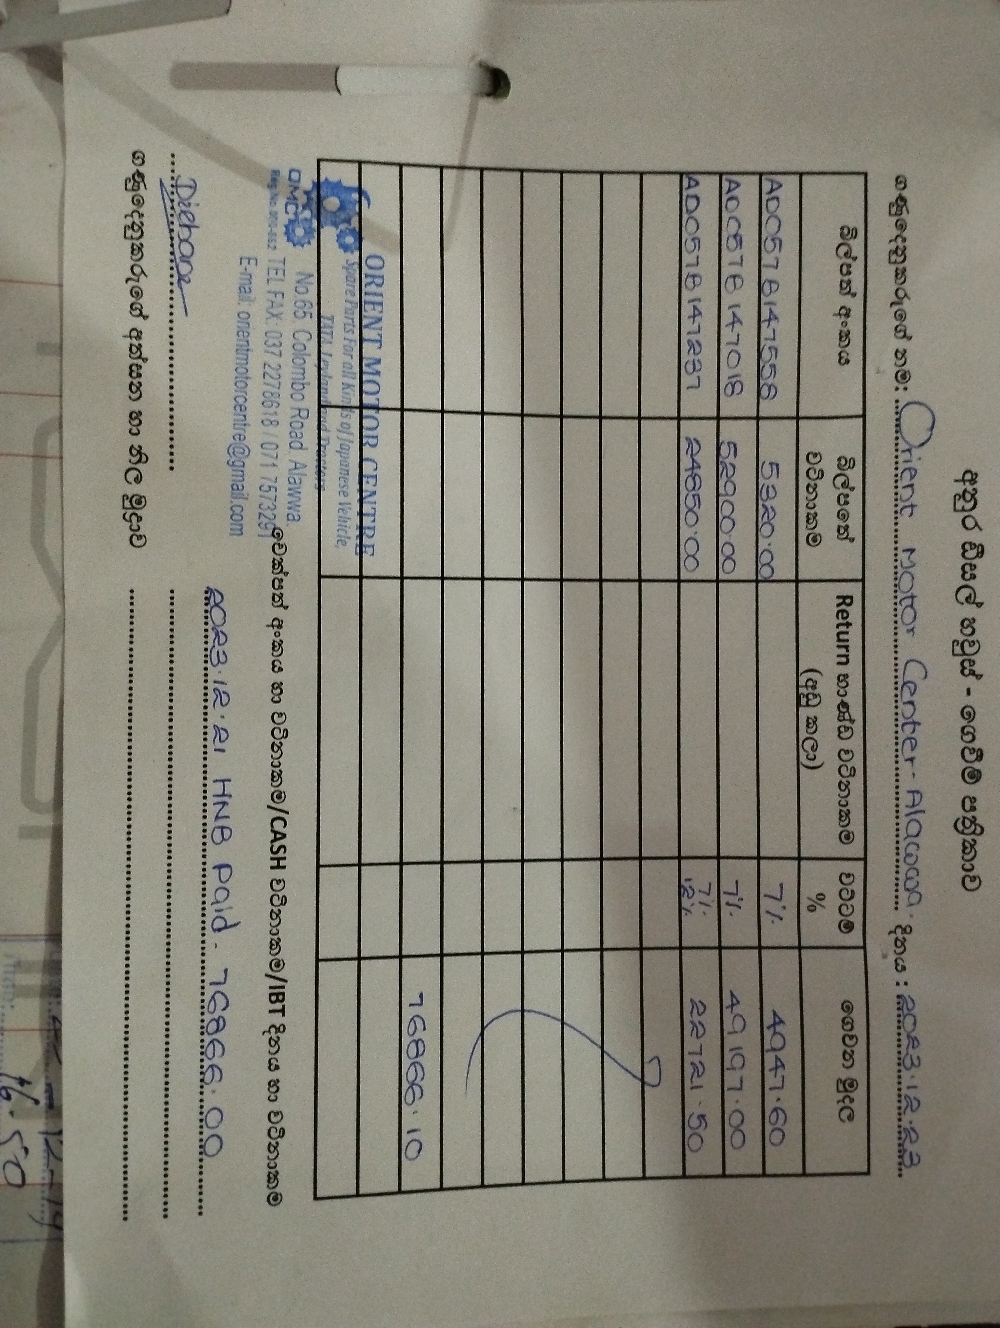 අනුර ඩීසල් හවුස් - ගෙවීම් පත්‍රිකාව
ගණුදෙනුකරුගේ නම: Orient Motor Center-Alawwa. දිනය : 2023.12.23
බිල්පත් අංකය බිල්පතේ වටිනාකම Return භාණ්ඩ වටිනාකම (අඩු කලා) වට්ටම් % ගෙවන මුදල
AD057B147558 5320.00 7% 4947.60
AD057B147018 52900.00 7% 49197.00
AD057B147237 24850.00 7% 12% 22721.50
76866.10
ORIENT MOTOR CENTRE
Spare Parts For all Kinds of Japanese Vehicle,
TATA, Leyland and Tractors
OMC No.65 Colombo Road, Alawwa.
TEL FAX: 037 2278618 / 071 757329
E-mail: orientmotorcentre@gmail.com
චෙක්පත් අංකය හා වටිනාකම/CASH වටිනාකම/IBT දිනය හා වටිනාකම
2023.12.21 HNB Paid - 76866.00
ගණුදෙනුකරුගේ අත්සන හා නිල මුද්‍රාව